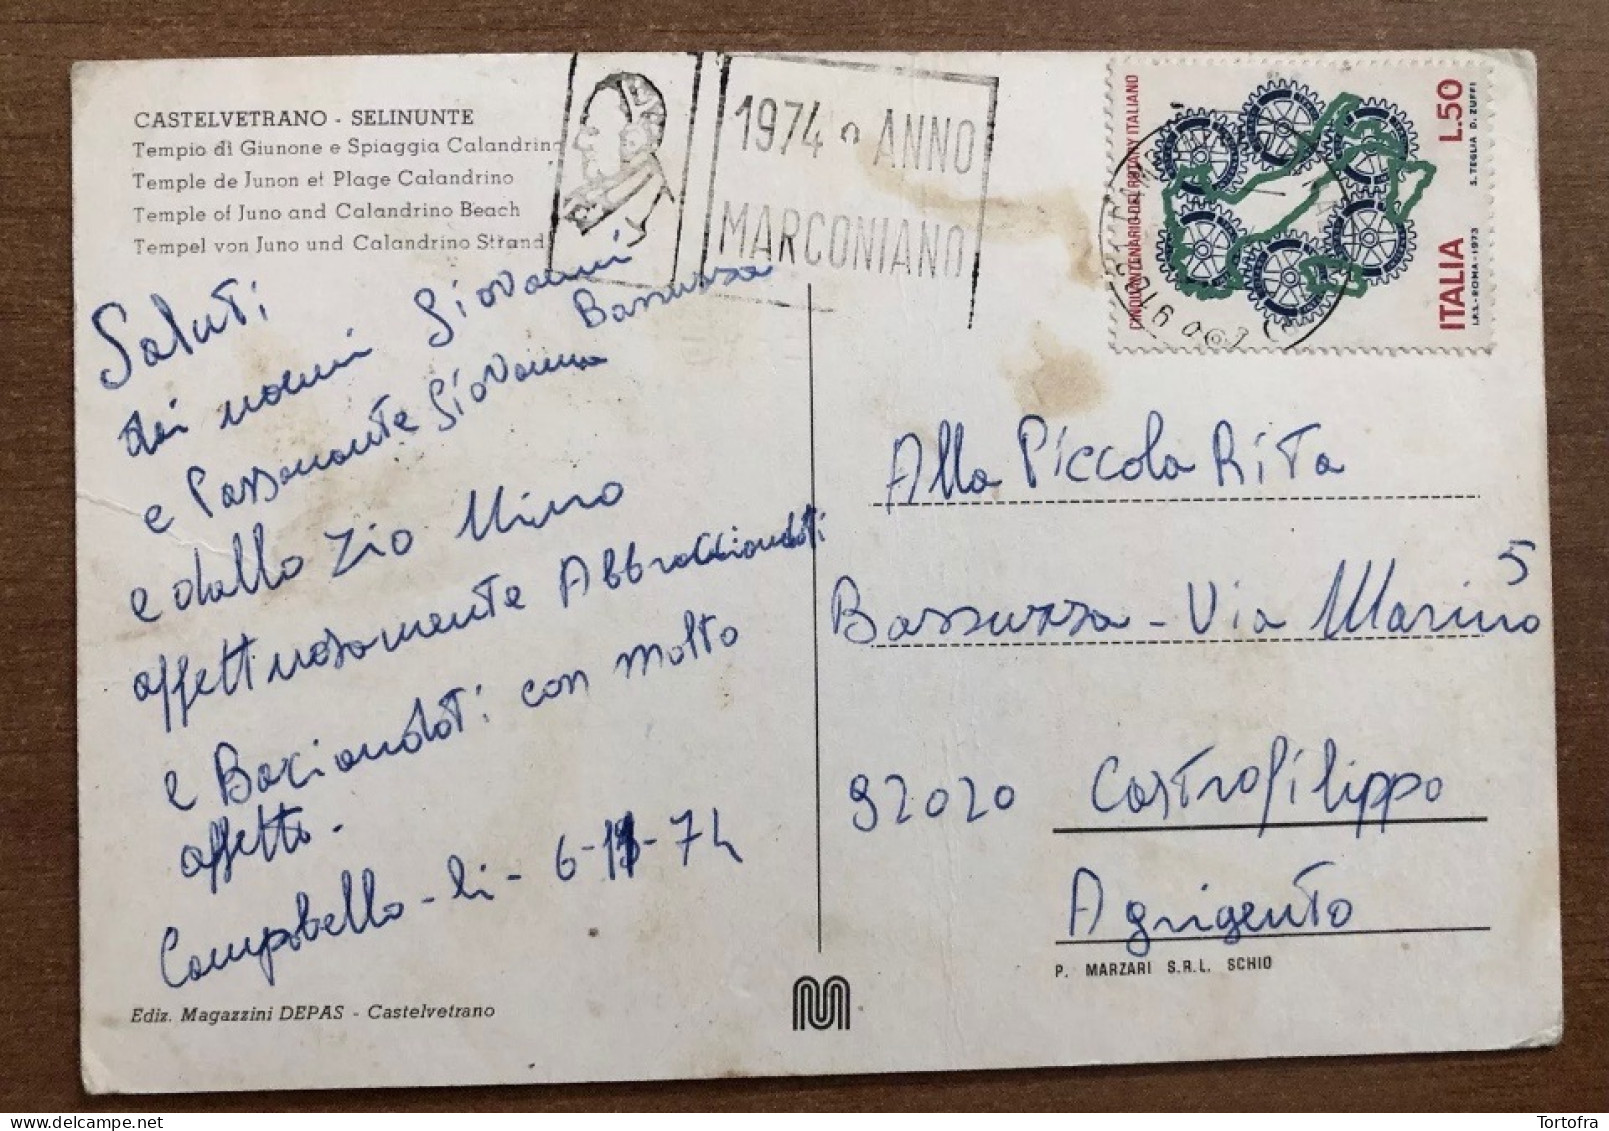 CASTELVETRANO - SELINUNTE
Tempio di Giunone e Spiaggia Calandrino
Temple de Junon et Plage Calandrino
Temple of Juno and Calandrino Beach
Tempel von Juno und Calandrino Strand
1974 ANNO
MARCONIANO
CINQUANTENARIO DEL ROTARY ITALIANO
L.50
ITALIA
S. TEGLIA D. ZUFFI
I.P.S. - ROMA - 1973
Saluti
dai nonni Giovanni
Bassuzza
e Passanante Giovanna
e dallo Zio Nino
affettuosamente Abbracciandoti
e Baciandoti con molto
affetto.
Campobello - li - 6-11-74
Alla Piccola Rita
Bassuzza - Via Marino 5
92020 Castrofilippo
Agrigento
P. MARZARI S.R.L. SCHIO
Ediz. Magazzini DEPAS - Castelvetrano
Tortofra